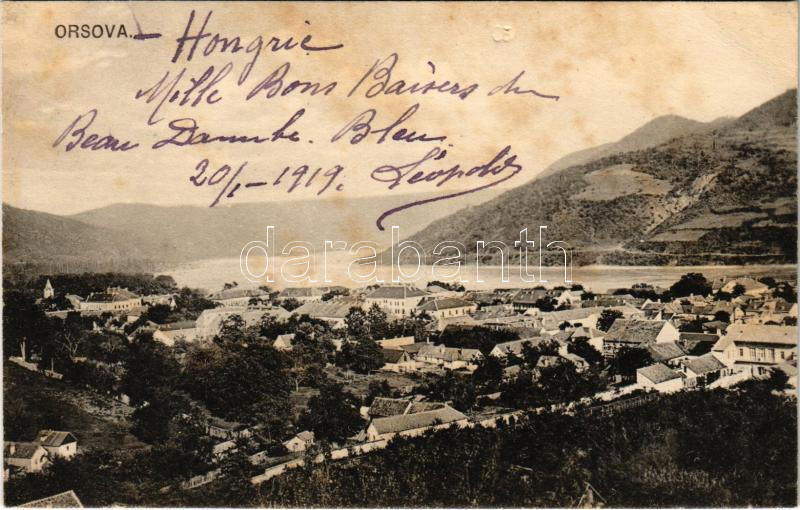 ORSOVA. - Hongrie
Mille Bons Baisers du
Beau Danube. Bleu.
20/1-1919. Léopold
darabanth.com